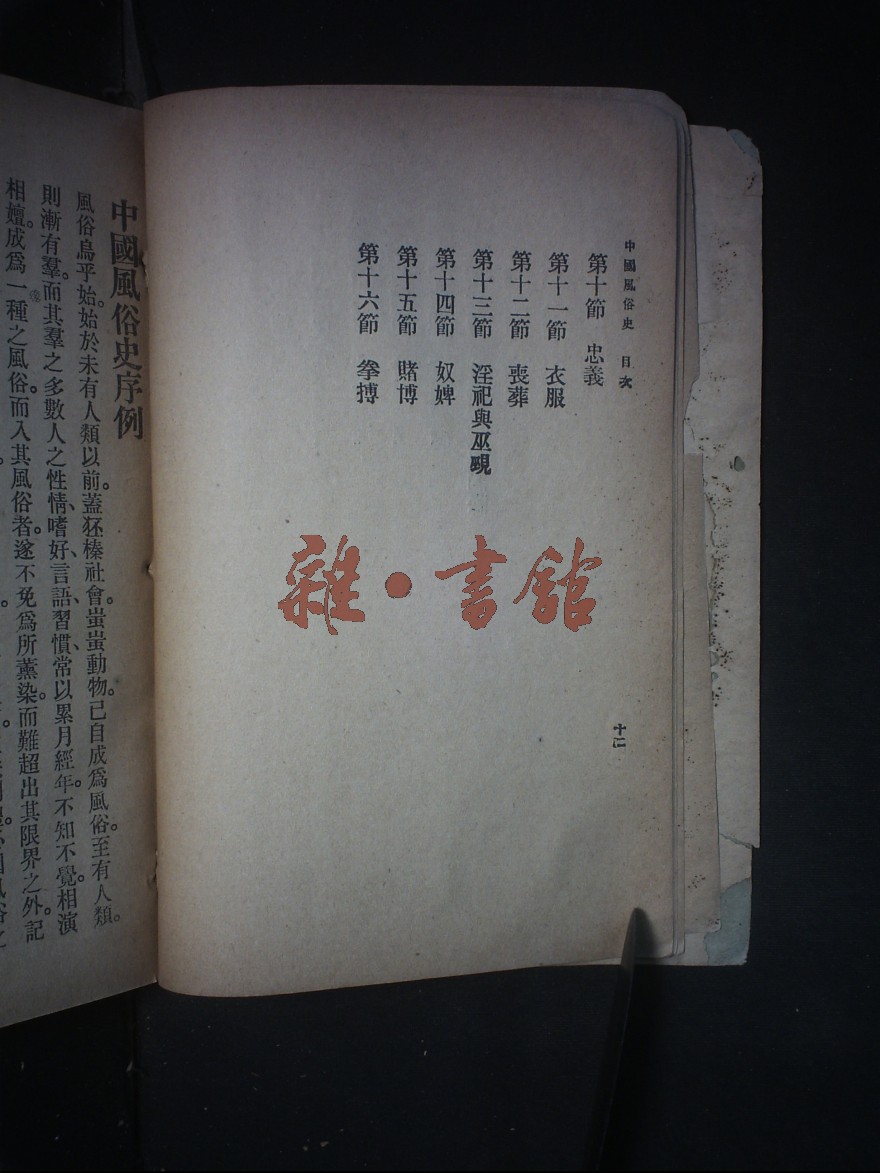 中國風俗史 目次
第十節 忠義
第十一節 衣服
第十二節 喪葬
第十三節 淫祀與巫覡
第十四節 奴婢
第十五節 賭博
第十六節 拳搏
十二
雜·書館
中國風俗史序例
風俗烏乎始。始於未有人類以前。蓋狉榛社會。蚩蚩動物。已自成爲風俗。至有人類。
則漸有羣。而其羣之多數人之性情、嗜好、言語、習慣、常以累月經年。不知不覺。相演
相嬗。成爲一種之風俗。而入其風俗者。遂不免爲所薰染。而難超出其限界之外。記